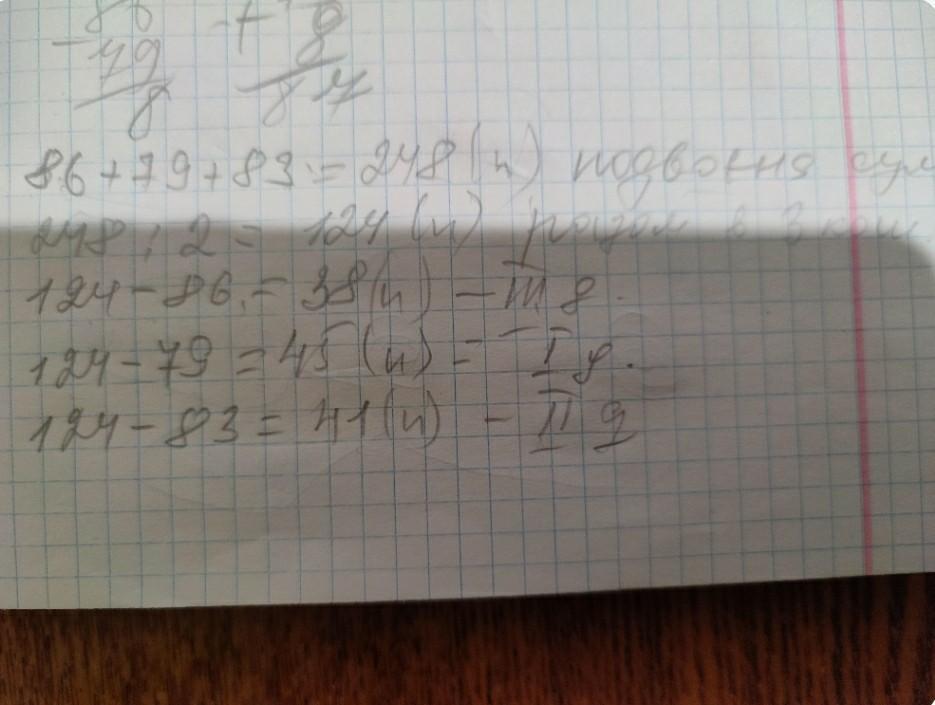 86 + 9
- 79 8
8 87
86+79+83 = 248 (п) подвоєна сум
248 : 2 = 124 (п) разом в 3 кош
124 - 86 = 38 (п) - III д.
124 - 79 = 45 (п) = I д.
124 - 83 = 41 (п) - II д